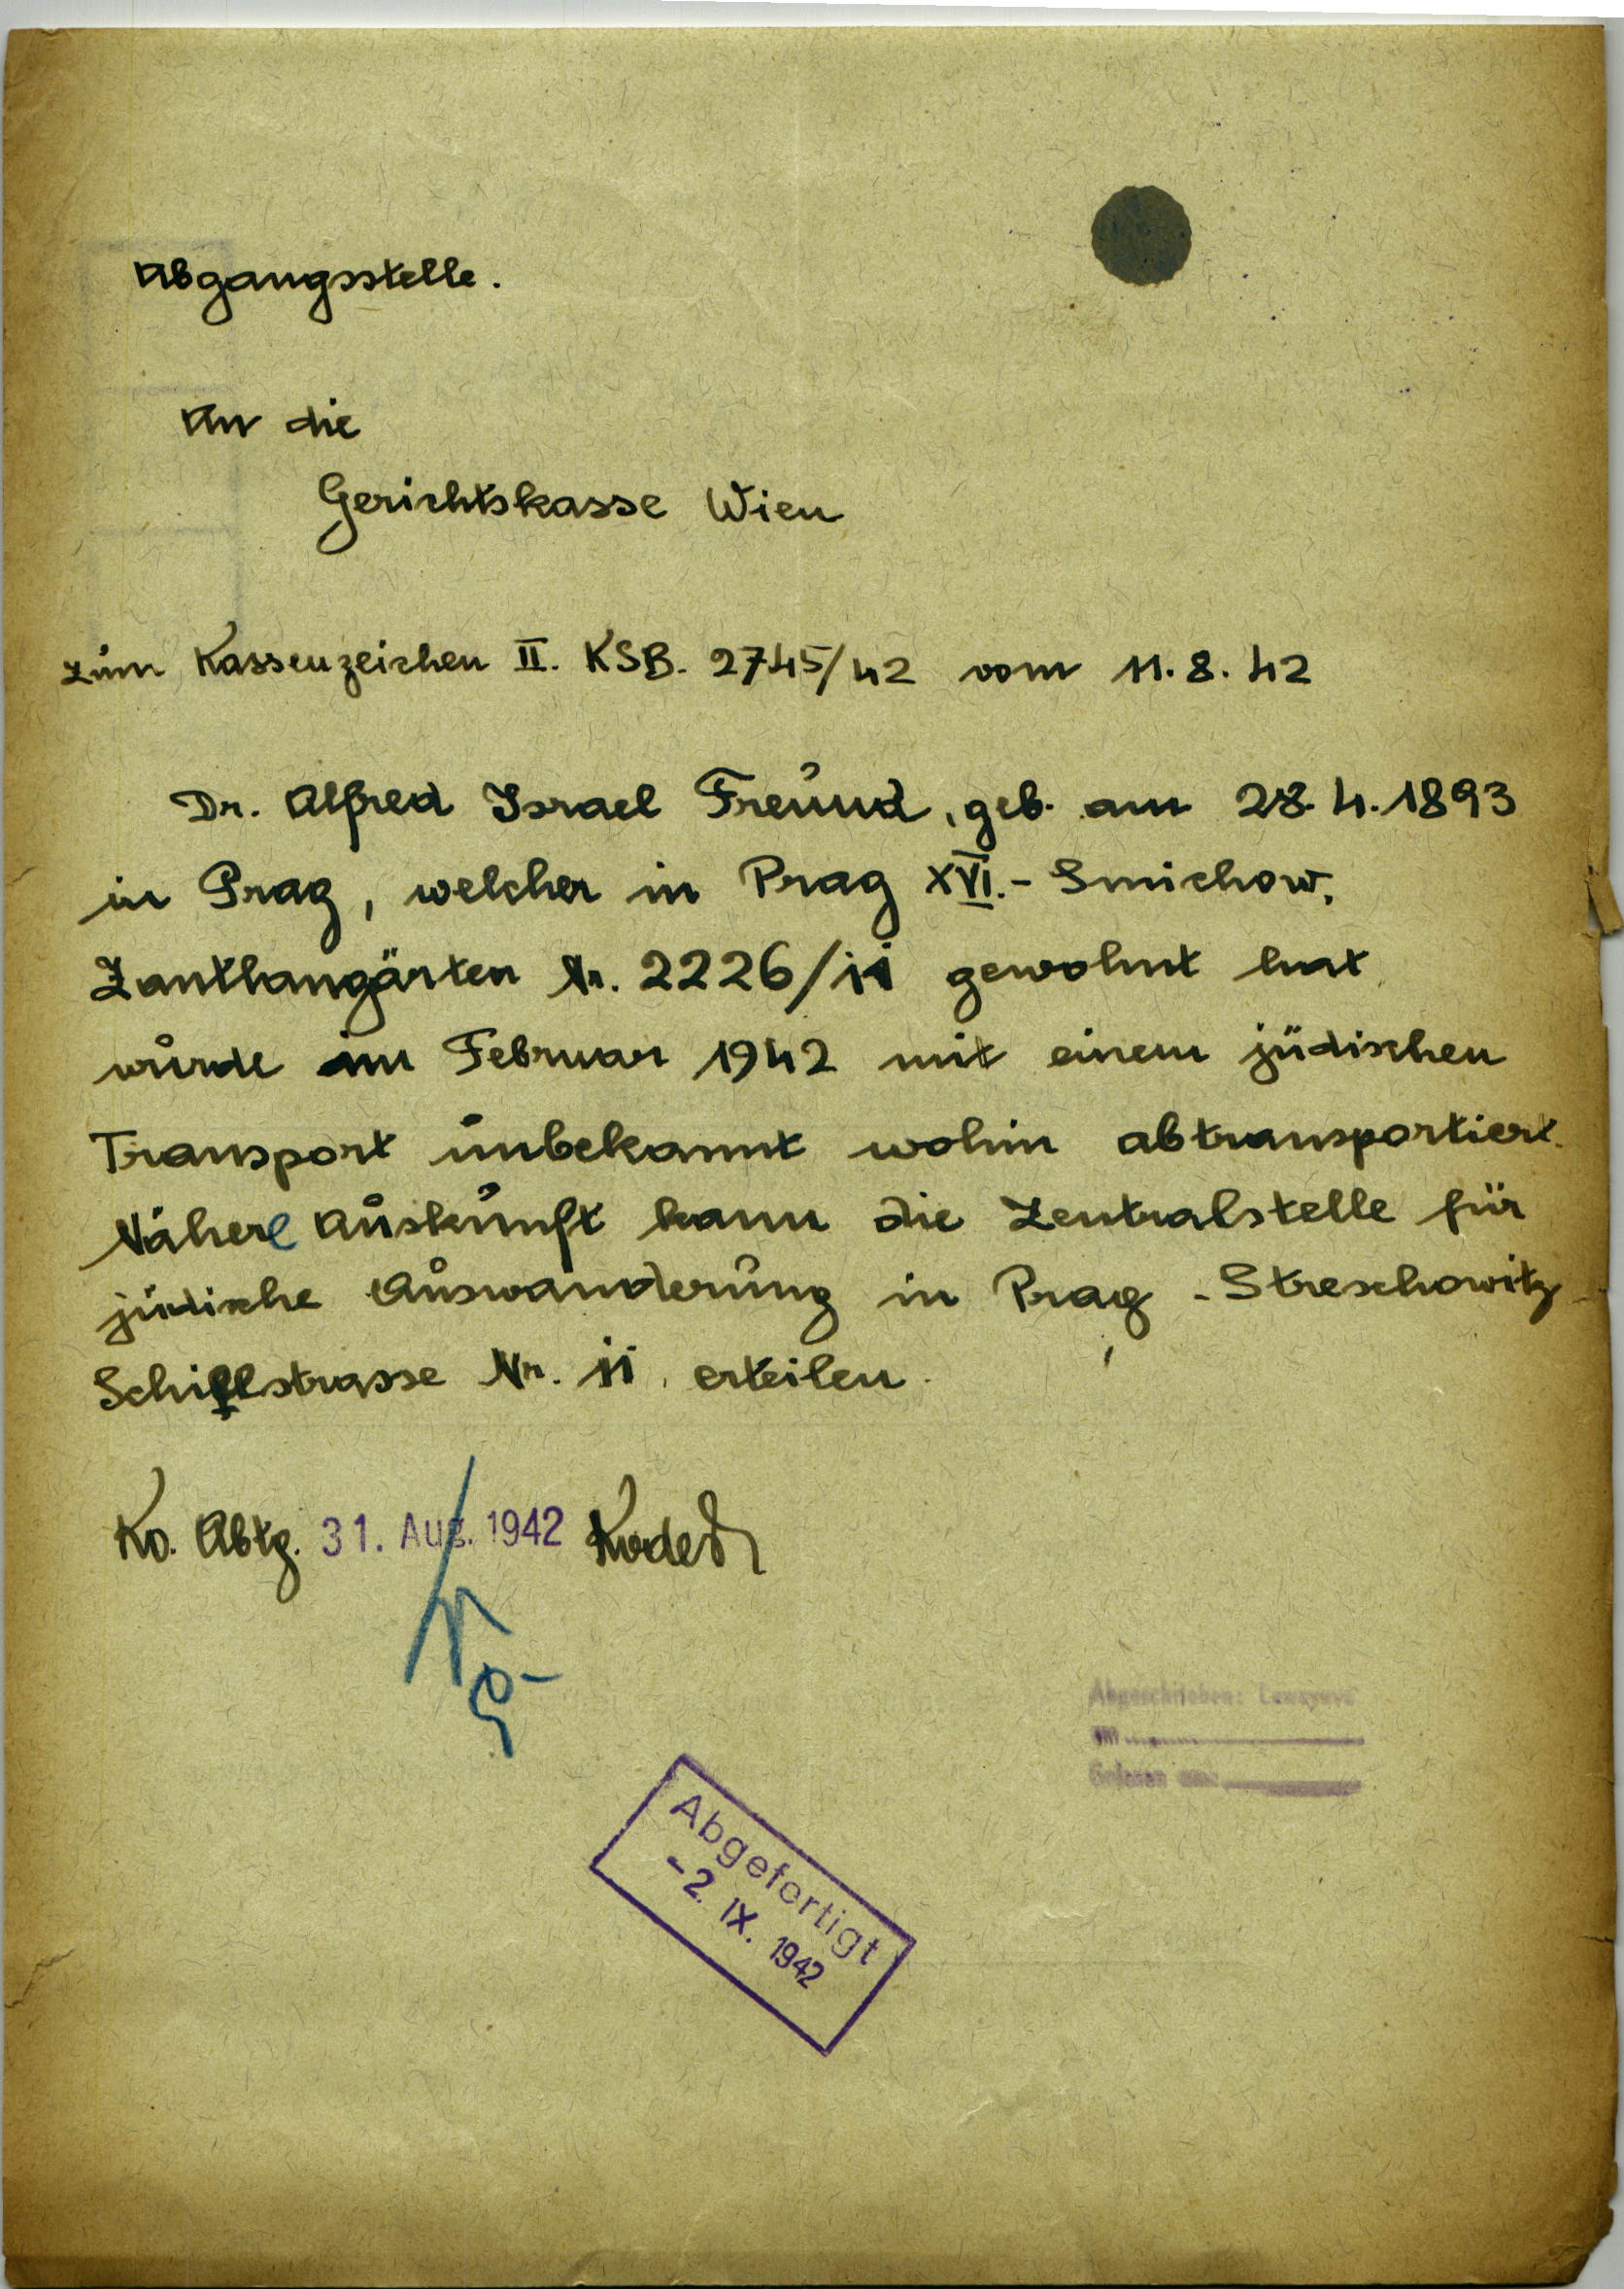 Abgangsstelle.
An die
Gerichtskasse Wien
zum Kassenzeichen II. KSB. 2745/42 vom 11.8.42
Dr. Alfred Israel Freund, geb. am 28.4.1893
in Prag, welcher in Prag XVI.- Smichow,
Zanthangärten Nr. 2226/11 gewohnt hat
wurde im Februar 1942 mit einem jüdischen
Transport unbekannt wohin abtransportiert.
Nähere Auskunft kann die Zentralstelle für
jüdische Auswanderung in Prag - Streschowitz
Schillstrasse Nr. 11. erteilen.
Ko. Abtg. 31. Aug. 1942
Abgefertigt
-2. IX. 1942
Abgeschrieben:
am
Gelesen am: